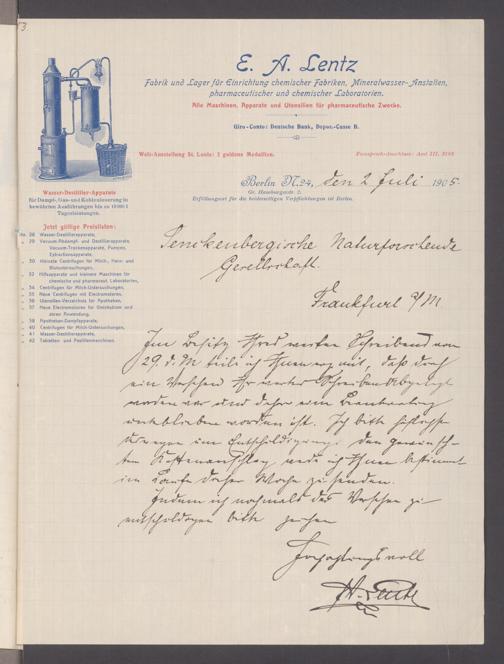 E. A. Lentz
Fabrik und Lager für Einrichtung chemischer Fabriken, Mineralwasser-Anstalten,
pharmaceutischer und chemischer Laboratorien.
Alle Maschinen, Apparate und Utensilien für pharmaceutische Zwecke.
Giro-Conto: Deutsche Bank, Depos.-Casse B.
Welt-Ausstellung St. Louis: 2 goldene Medaillen.
Fernsprech-Anschluss: Amt III,
Berlin N. 24, den 2 Juli 1905.
Gr. Hamburgerstr. 2.
Erfüllungsort für die beiderseitigen Verpflichtungen ist Berlin.
Wasser-Destillier-Apparate
für Dampf-, Gas- und Kohlenfeuerung in
bewährten Ausführungen bis zu 10000 l
Tagesleistungen.
Jetzt gültige Preislisten:
No. 28 Wasser-Destillierapparate,
29 Vacuum-Abdampf- und Destillierapparate,
Vacuum-Trockenapparate, Pumpen,
Extractionsapparate.
30 Centrifugen für Milch-, Harn- und
Blutuntersuchungen,
32 Hilfsapparate und kleinere Maschinen für
chemische und pharmaceut. Laboratorien,
34 Centrifugen für Milch-Untersuchungen,
35 Neue Centrifugen mit Electromotoren.
36 Utensilien-Verzeichnis für Apotheken,
37 Neue Electromotoren für Gleichstrom und
deren Anwendung.
39 Apotheken-Dampfapparate,
40 Centrifugen für Milch-Untersuchungen,
41 Wasser-Destillierapparate,
42 Tabletten- und Pastillenmaschinen.
Senckenbergische Naturforschende
Gesellschaft.
Frankfurt a/M
Im Besitz Ihres werten Schreibens vom
29. d. M. teile ich Ihnen mit, daß durch
ein Versehen Ihr wertes Schreiben abgelegt
worden war und daher eine Beantwortung
unterblieben worden ist. Ich bitte höflichst
um Entschuldigung; den gewünsch-
ten Kostenanschlag werde ich Ihnen bestimmt
im Laufe dieser Woche zusenden.
Indem ich nochmals das Versehen zu
entschuldigen bitte zeichne
Hochachtungsvoll
Lentz